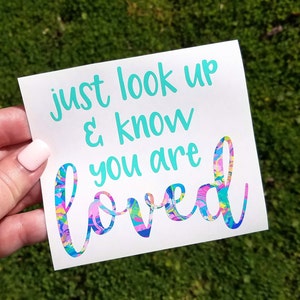 just look up
& know
you are
loved